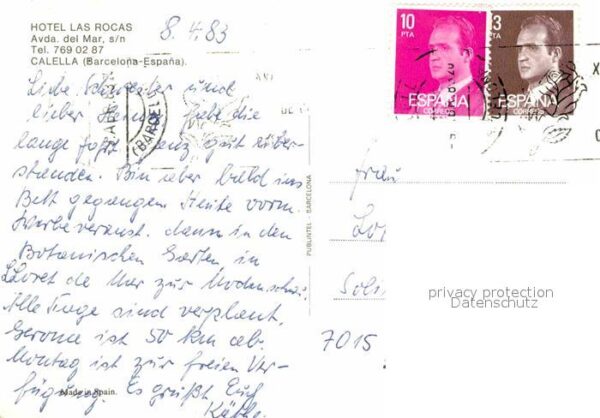 HOTEL LAS ROCAS
Avda. del Mar, s/n
Tel. 769 02 87
CALELLA (Barcelona-España).
8.4.83
10
PTA
ESPAÑA
CORREOS
3
PTA
ESPAÑA
CORREOS
(BARCEL
Liebe Schwester und
lieber habe die
lange Fahrt ganz gut über-
standen. Bin aber bald ins
Bett gegangen. Heute vorm.
Werbeveranst. dann in den
Botanischen Garten in
Lloret de Mar zur Modenschau.
Alle Tage sind verplant.
Gerona ist 50 km ab.
Montag ist zur freien Ver-
fügung. Es grüßt Euch
Käthe.
Made in Spain.
PUBLINTEL - BARCELONA
Frau
7015
privacy protection
Datenschutz